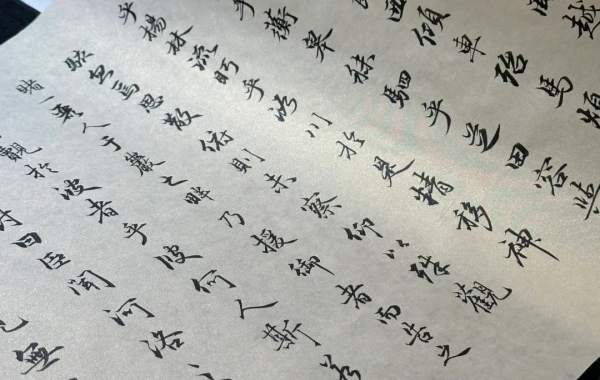 越
西傾車殆馬煩
乎蘅皋秣駟乎芝田容與
乎楊林流眄乎洛川於是精移神
駭忽焉思散俯則未察仰以殊觀
睹一麗人于巖之畔乃援御者而告之
覿於彼者乎彼何人斯若
對曰臣聞河洛
無